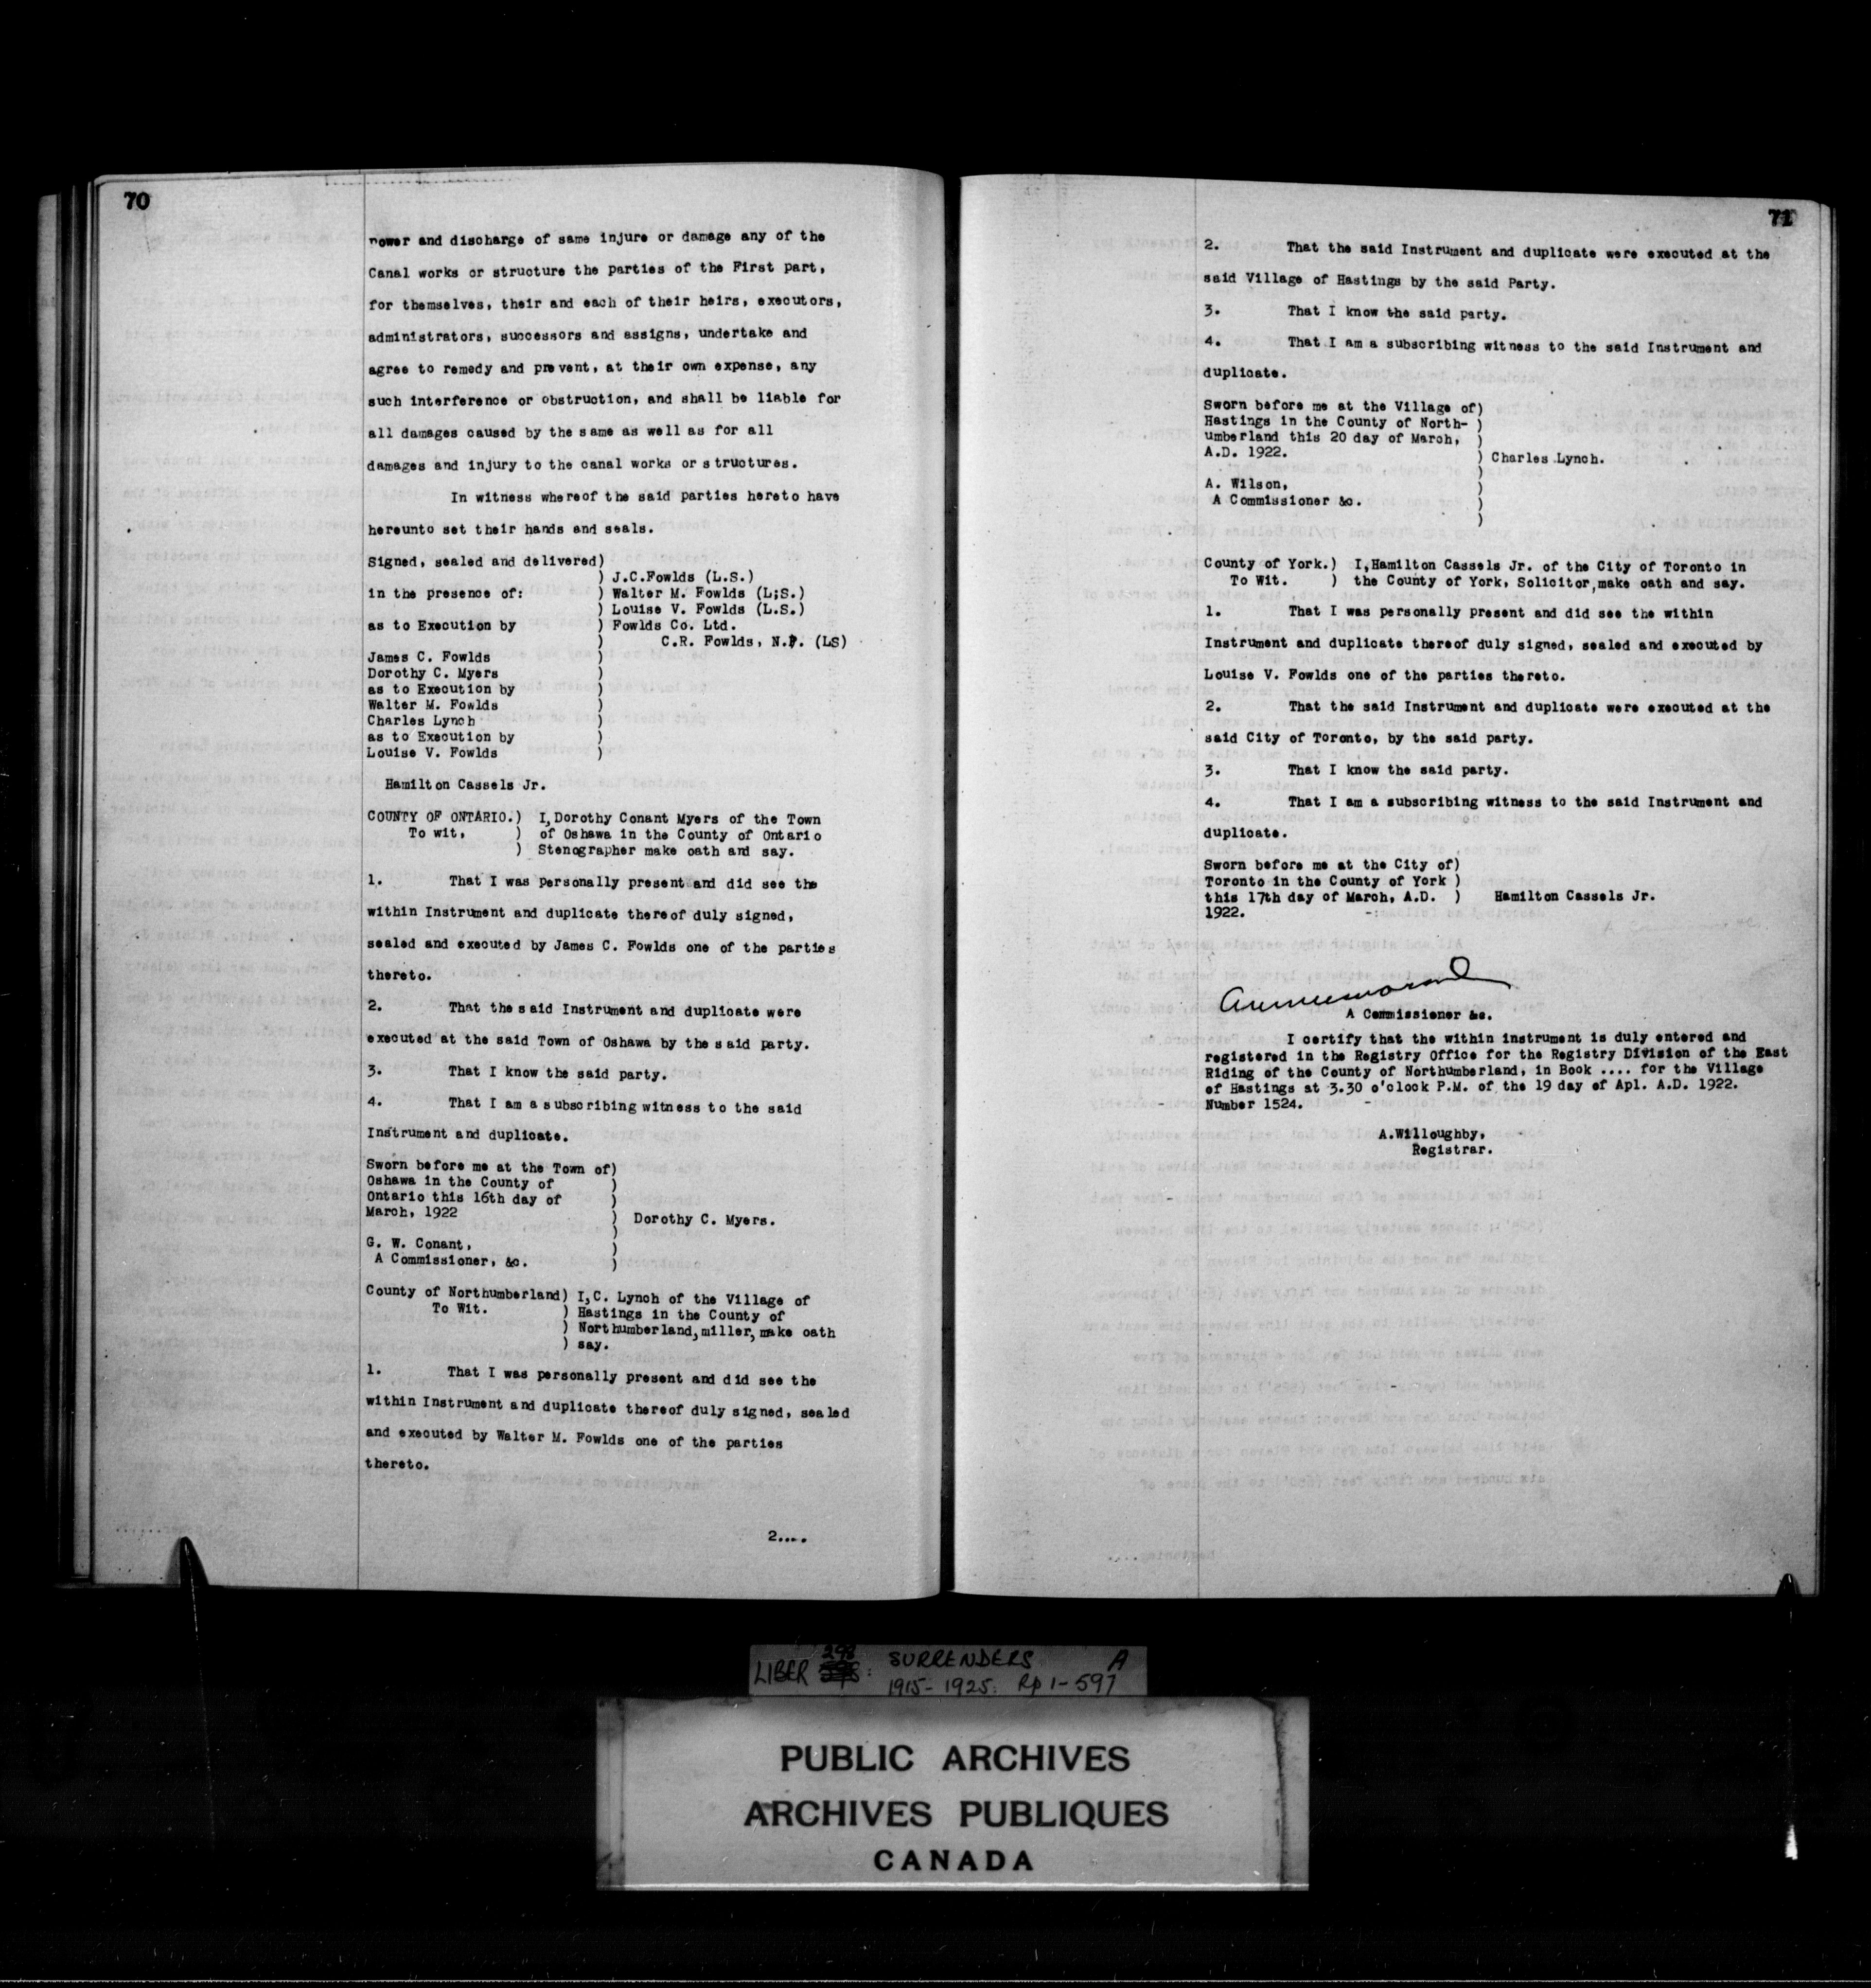 70
power and discharge of same injure or damage any of the
Canal works or structure the parties of the First part,
for themselves, their and each of their heirs, executors,
administrators, successors and assigns, undertake and
agree to remedy and prevent, at their own expense, any
such interference or obstruction, and shall be liable for
all damages caused by the same as well as for all
damages and injury to the canal works or structures.
In witness whereof the said parties hereto have
hereunto set their hands and seals.
Signed, sealed and delivered)
) J.C.Fowlds (L.S.)
in the presence of: ) Walter M. Fowlds (L;S.)
) Louise V. Fowlds (L.S.)
as to Execution by ) Fowlds Co. Ltd.
) C.R. Fowlds, N.P. (LS)
James C. Fowlds )
Dorothy C. Myers )
as to Execution by )
Walter M. Fowlds )
Charles Lynch )
as to Execution by )
Louise V. Fowlds )
Hamilton Cassels Jr.
COUNTY OF ONTARIO.) I,Dorothy Conant Myers of the Town
To wit, ) of Oshawa in the County of Ontario
) Stenographer make oath and say.
1. That I was personally present and did see the
within Instrument and duplicate thereof duly signed,
sealed and executed by James C. Fowlds one of the parties
thereto.
2. That the said Instrument and duplicate were
executed at the said Town of Oshawa by the said party.
3. That I know the said party.
4. That I am a subscribing witness to the said
Instrument and duplicate.
Sworn before me at the Town of)
Oshawa in the County of )
Ontario this 16th day of )
March, 1922 ) Dorothy C. Myers.
)
G. W. Conant, )
A Commissioner, &c. )
County of Northumberland) I,C. Lynch of the Village of
To Wit. ) Hastings in the County of
) Northumberland,miller,make oath
) say.
1. That I was personally present and did see the
within Instrument and duplicate thereof duly signed, sealed
and executed by Walter M. Fowlds one of the parties
thereto.
2....
71
2. That the said Instrument and duplicate were executed at the
said Village of Hastings by the said Party.
3. That I know the said party.
4. That I am a subscribing witness to the said Instrument and
duplicate.
Sworn before me at the Village of)
Hastings in the County of North- )
umberland this 20 day of March, )
A.D. 1922. ) Charles Lynch.
)
A. Wilson, )
A Commissioner &c. )
)
County of York.) I,Hamilton Cassels Jr. of the City of Toronto in
To Wit. ) the County of York, Solicitor,make oath and say.
1. That I was personally present and did see the within
Instrument and duplicate thereof duly signed, sealed and executed by
Louise V. Fowlds one of the parties thereto.
2. That the said Instrument and duplicate were executed at the
said City of Toronto, by the said party.
3. That I know the said party.
4. That I am a subscribing witness to the said Instrument and
duplicate.
Sworn before me at the City of)
Toronto in the County of York )
this 17th day of March, A.D. ) Hamilton Cassels Jr.
1922. -:
A Commissioner &c.
I certify that the within instrument is duly entered and
registered in the Registry Office for the Registry Division of the East
Riding of the County of Northumberland, in Book .... for the Village
of Hastings at 3.30 o'clock P.M. of the 19 day of Apl. A.D. 1922.
Number 1524.
A.Willoughby,
Registrar.
LIBER 298: SURRENDERS A
1915-1925: Pp 1-597
PUBLIC ARCHIVES
ARCHIVES PUBLIQUES
CANADA